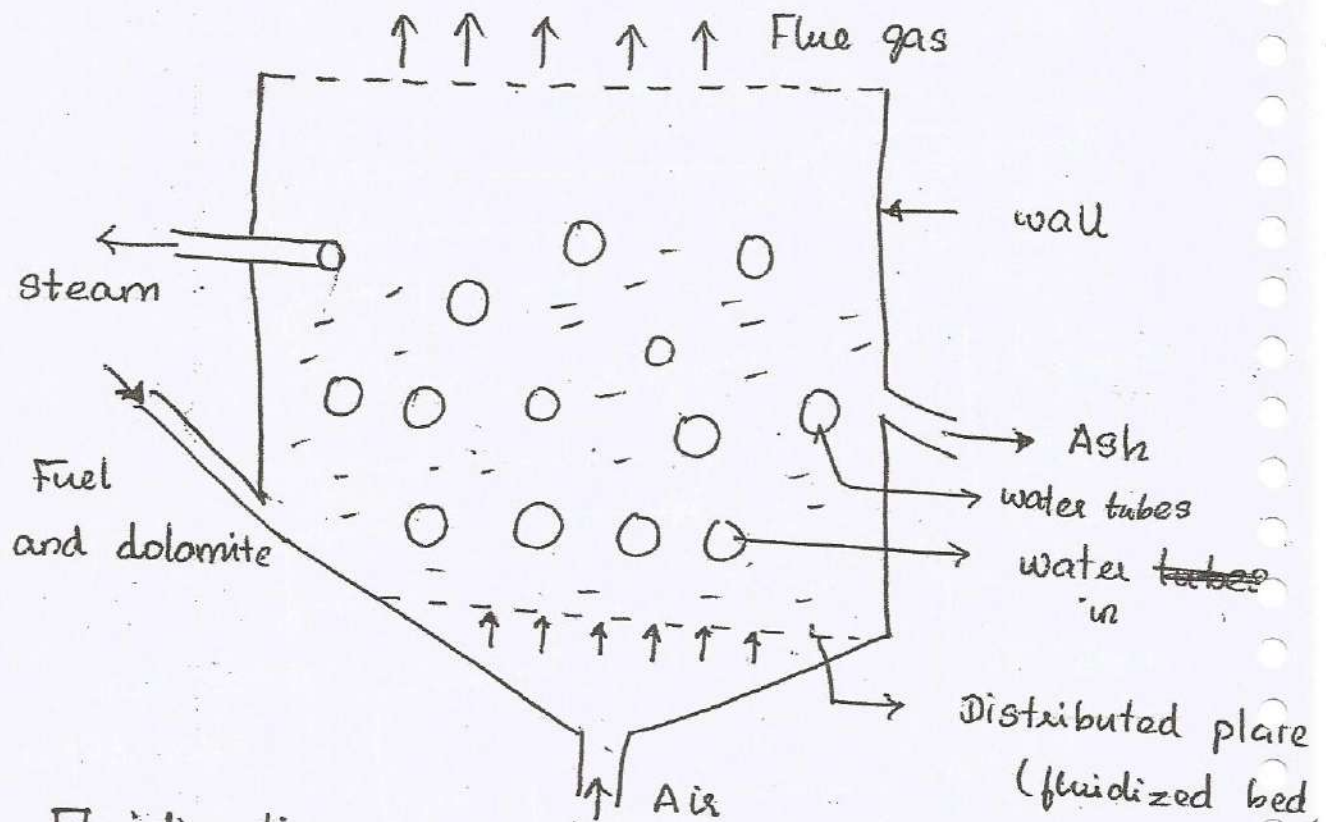 Flue gas
wall
steam
Ash
Fuel
and dolomite
water tubes
water tubes
in
Distributed plare
(fluidized bed
Air